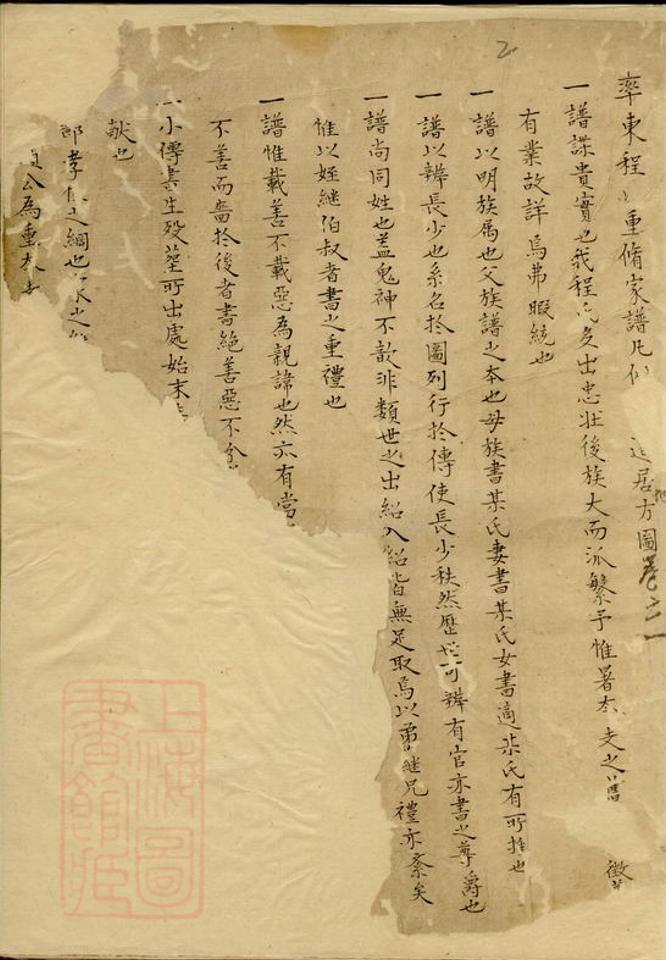 2
率東程氏重脩家譜凡例 遷居方圖卷之一
一譜諜貴實也我程氏多出忠壯後族大而派繁予惟署本支之舊 徵
有業故詳焉弗暇統也
一譜以明族属也父族譜之本也母族書某氏妻書某氏女書適某氏有所推也
一譜以辨長少也系名扵圖列行扵傳使長少秩然歷世可辨有官亦書之尊爵也
一譜尚同姓也盖鬼神不歆非類世之出紹入紹皆無足取焉以弟継兄禮亦紊矣
惟以姪継伯叔者書之重禮也
一譜惟載善不載惡為親諱也然亦有當
不善而嗇扵後者書絶善惡不
一小傳書生殁塟所出處始末
献也
之綱也 之
公為重本
上海圖書館藏